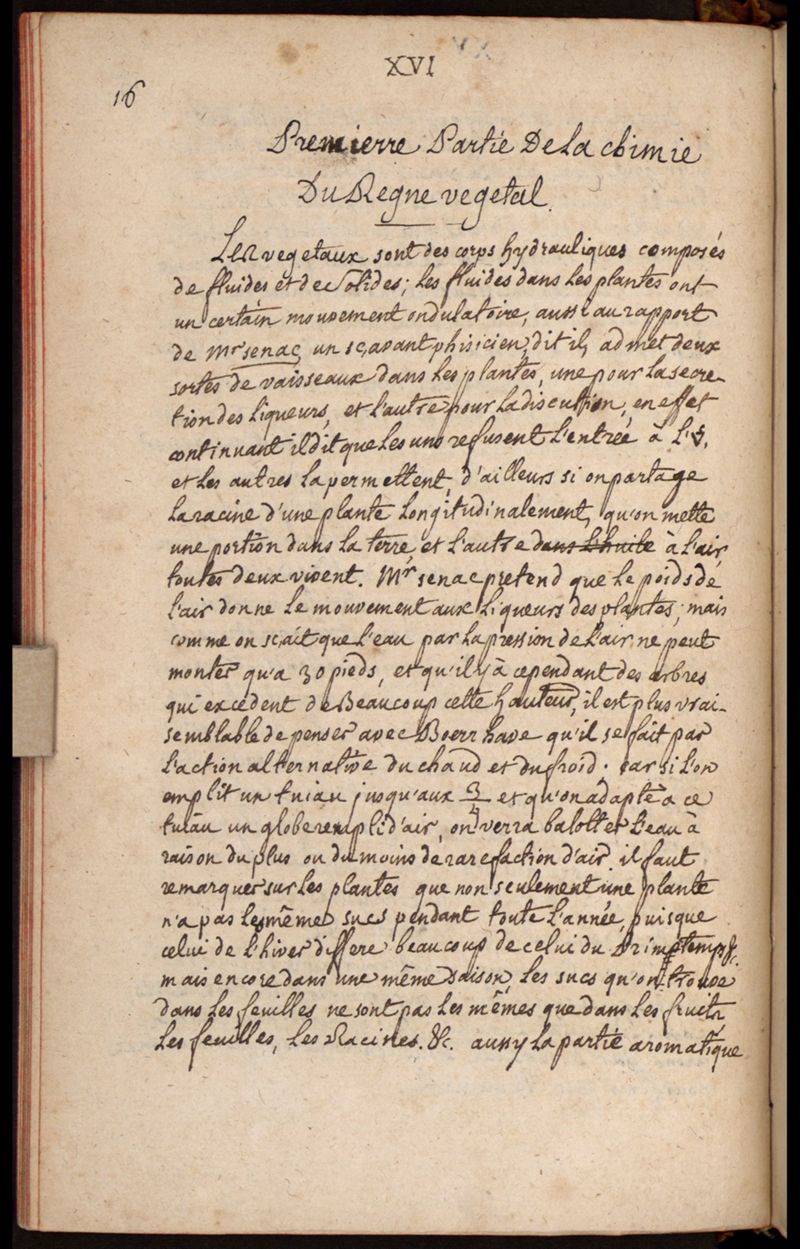 XVI
16
Premierre Partie De La chimie
Du Regne vegetal.
Les vegetaux sont des corps hydrauliques composés
de fluides et de solides; les fluides dans les plantes ont
un certain mouvement ondulatoire, aussi au rapport
de Mr senac un sçavant phisicien, dit il, admet deux
sortes de vaisseaux dans les plantes, une pour la secre-
tion des liqueurs, et l'autre pour la discussion, en effet
continuant il dit que les uns refusent l'entrée à l'
et les autres la permettent, d'ailleurs si on partage
la racine d'une plante longitudinalement, qu'on mette
une portion dans la terre, et l'autre dans l'huile à l'air,
toutes deux vivent. Mr senac pretend que le poids de
l'air donne le mouvement aux liqueurs des plantes; mais
comme on sçait que l'eau par la pression de l'air ne peut
monter qu'a 30 pieds, et qu'il y à cependant des arbres
qui excedent de Beaucoup cette hauteur, il est plus vrai-
semblable de penser avec Boerrhave qu'il se fait par
l'action alternative du chaud et du froid. car si l'on
emplit un tuiau jusqu'aux 3/4 et qu'on adapte a ce
tuiau un globe rempli d'air, on verra balotter l'eau à
raison du plus ou du moins de rarefaction d'air. il faut
remarquer sur les plantes que non seulement une plante
n'a pas les mêmes sucs pendant toute l'année, puisque
celui de l'hiver differe beaucoup de celui du Printemps &c.
mais encore dans une même saison, les sucs qu'on trouve
dans les feuilles ne sont pas les mêmes que dans les fruits
les feuilles, les Racines. &c. aussy la partie aromatique